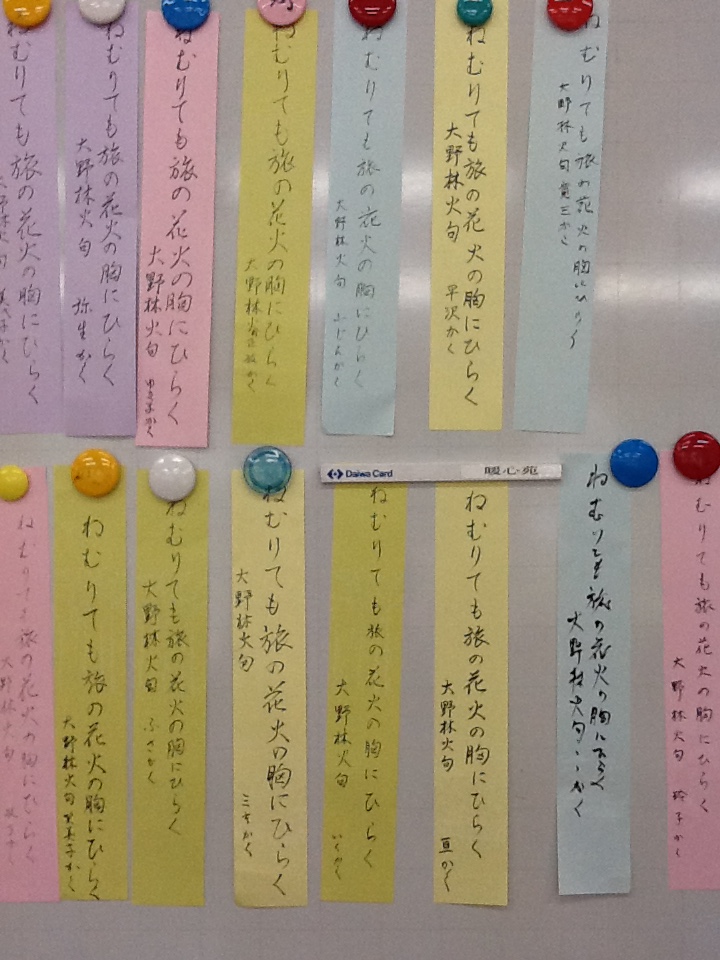 ねむりても旅の花火の胸にひらく
大野林火句
寛三かく
ねむりても旅の花火の胸にひらく
大野林火句
早沢かく
ねむりても旅の花火の胸にひらく
大野林火句
ふじんかく
ねむりても旅の花火の胸にひらく
大野林火
ねむりても旅の花火の胸にひらく
大野林火句
ゆき子かく
ねむりても旅の花火の胸にひらく
大野林火句
弥生かく
ねむりても旅の花火の胸にひらく
大野林火句
Daiwa Card
暖心苑
ねむりても旅の花火の胸にひらく
大野林火句
玲子かく
ねむりても旅の花火の胸にひらく
大野林火句
かく
ねむりても旅の花火の胸にひらく
大野林火句
亘かく
ねむりても旅の花火の胸にひらく
大野林火句
いくかく
ねむりても旅の花火の胸にひらく
大野林火句
三七かく
ねむりても旅の花火の胸にひらく
大野林火句
ふさかく
ねむりても旅の花火の胸にひらく
大野林火句
ねむりても旅の花火の胸にひらく
大野林火句